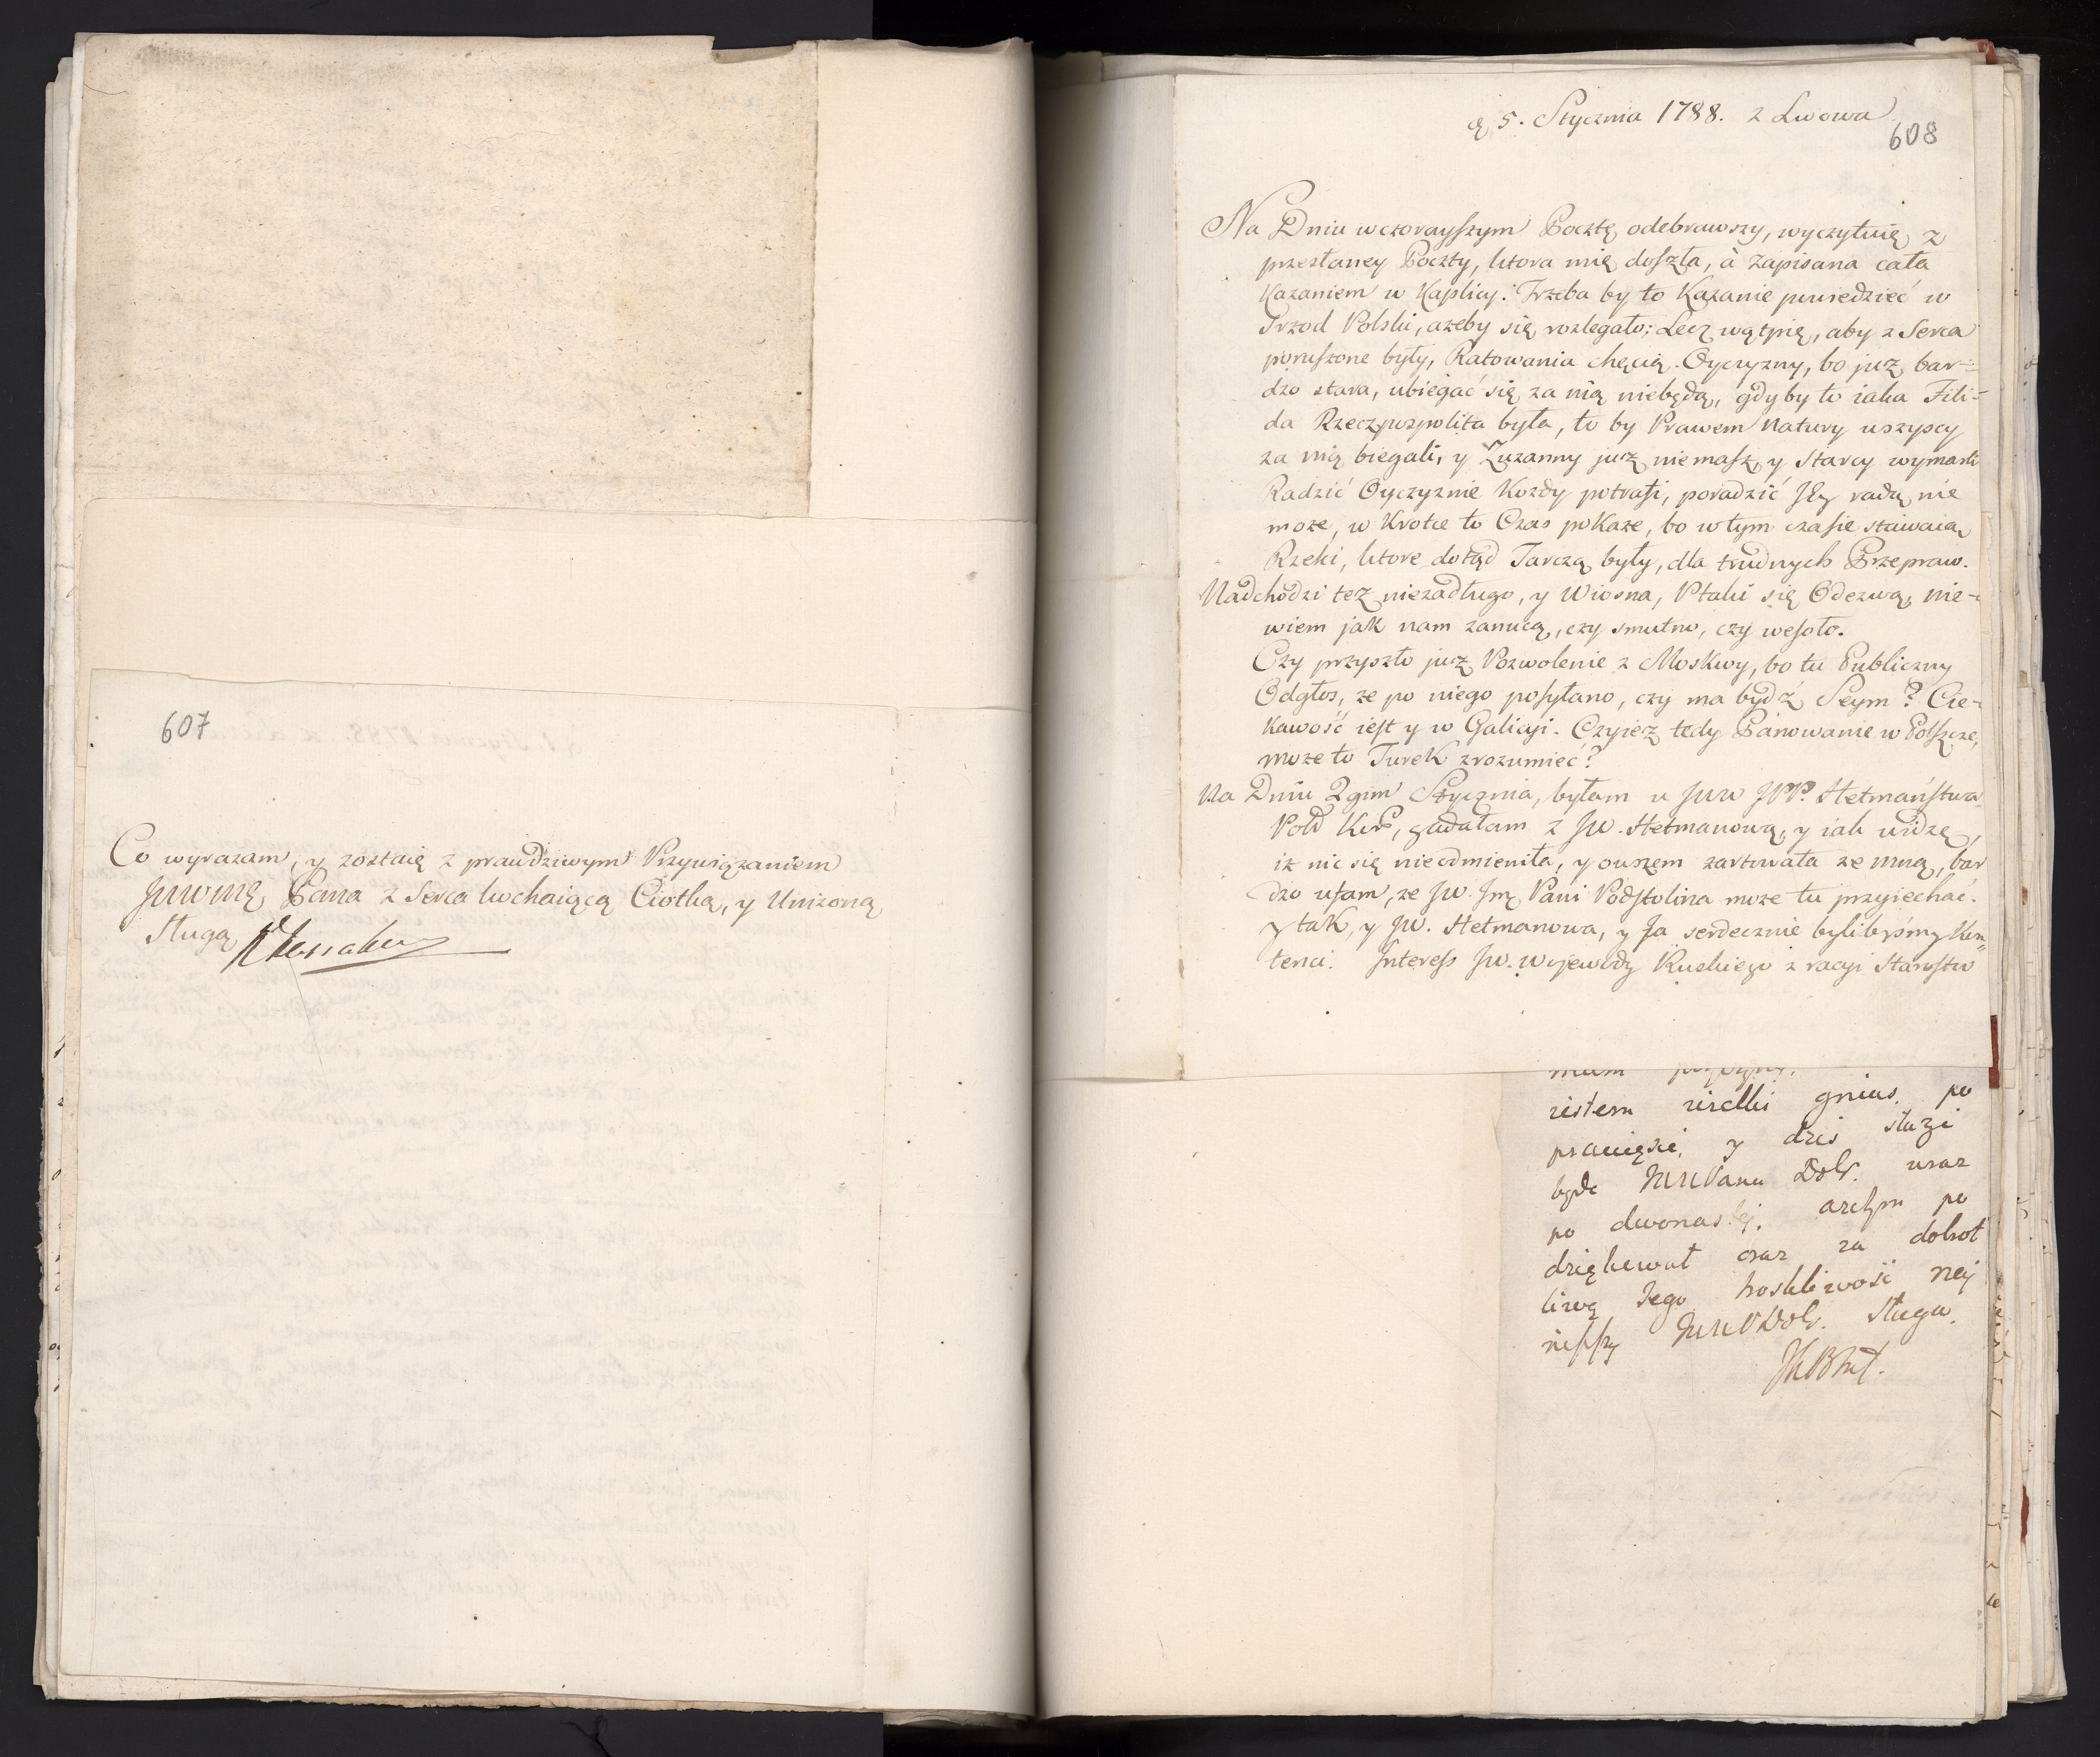 607
Co wyrazam, y zostaię z prawdziwym Przywiązaniem
JWWMę Pana z Serca kochaiącą Ciotką, y Unizoną
Sługą
d, 5. Stycznia 1788. z Lwowa
608
Na Dniu wczorayszym Pocztę odebrawszy, wyczytuię z
przesłaney Poczty, ktora mię doszła, à zapisana cała
Kazaniem w Kaplicy. Trzeba by to Kazanie powiedzieć w
Przod Polski, azeby się rozlegało; Lecz wątpię, aby z Serca
poruszone były, Ratowania chęcią Oyczyzny, bo juz bar-
dzo stara, ubiegać się za nią niebędą, gdyby to iaka Fili-
da Rzeczpospolita była, to by Prawem Natury wszyscy
za nią biegali, y Zuzanny juz niemasz, y Starcy wymarli
Radzić Oyczyznie Kozdy potrafi, poradzić Jey radą nie
moze, w Krotce to Czas poKaze, bo w tym czasie stawaią
Rzeki, ktore dotąd Tarczą były, dla trudnych Przepraw.
Nadchodzi tez niezadługo, y Wiosna, Ptaki się Odezwą, nie-
wiem jak nam zanucą, czy smutno, czy wesoło.
Czy przyszło juz Pozwolenie z Moskwy, bo tu Publiczny
Odgłos, ze po niego posyłano, czy ma bydź Seym? Cie-
kawość iest y w Galicyi. Czyiez tedy Panowanie w Polszcze,
moze to Turek zrozumieć?
Na Dniu 2gim Stycznia, byłam u JWW JPP. Hetmaństwa
Pold Kor, gadałam z JW. Hetmanową, y iak widzę,
iz nic się nieodmieniła, y owszem zartowała ze mną, bar
dzo ufam, ze JW. Jmę Pani Podstolina moze tu przyiechać.
y tak, y JW. Hetmanowa, y Ja serdecznie bylibyśmy Kon-
tenci. Interess JW. Wojewody Ruskiego z racyi Starostw
iestem wielki gnius po
y dzis służi
będe JWWPanu Dobr. wraz
po dwonastej. azebym po
dziękował oraz za dobrot
liwą Jego troskliwość naj
niższy JWWPDobr. Sługa.